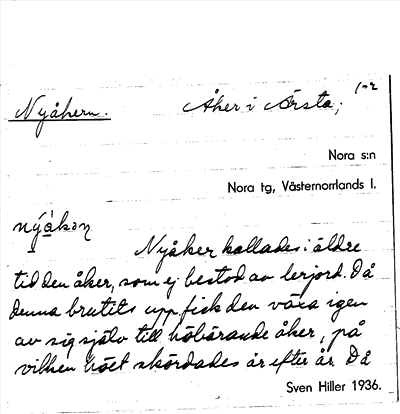 1-2
Nyåkern. Åker i Örsta,
Nora s:n
Nora tg, Västernorrlands l.
nýàkən
Nyåker kallades i äldre
tid den åker, som ej bestod av lerjord. Då
denna brutits upp fick den växa igen
av sig själv till höbärande åker, på
vilken höet skördades år efter år. Då
Sven Hiller 1936.